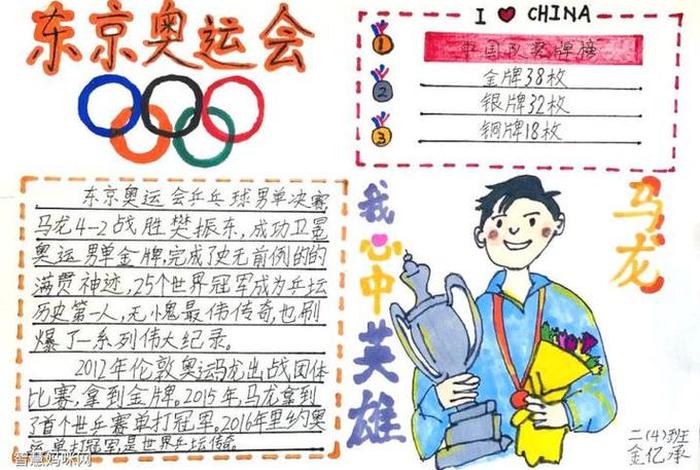 东京奥运会
I ❤ CHINA
1
中国队奖牌榜
2
金牌38枚
银牌32枚
3
铜牌18枚
东京奥运会乒乓球男单决赛
马龙4-2战胜樊振东,成功卫冕
奥运男单金牌,完成了史无前例的的
满贯神迹,25个世界冠军成为乒坛
历史第一人,无小鬼最伟传奇,也刷
爆了一系列伟大纪录。
2012年伦敦奥运马龙出战团体
比赛,拿到金牌。2015年马龙拿到
了首个世乒赛单打冠军。2016年里约奥
运单打冠军,是世界乒坛传奇
我心中英雄
马龙
二(4)班
金亿承
智慧妈咪网